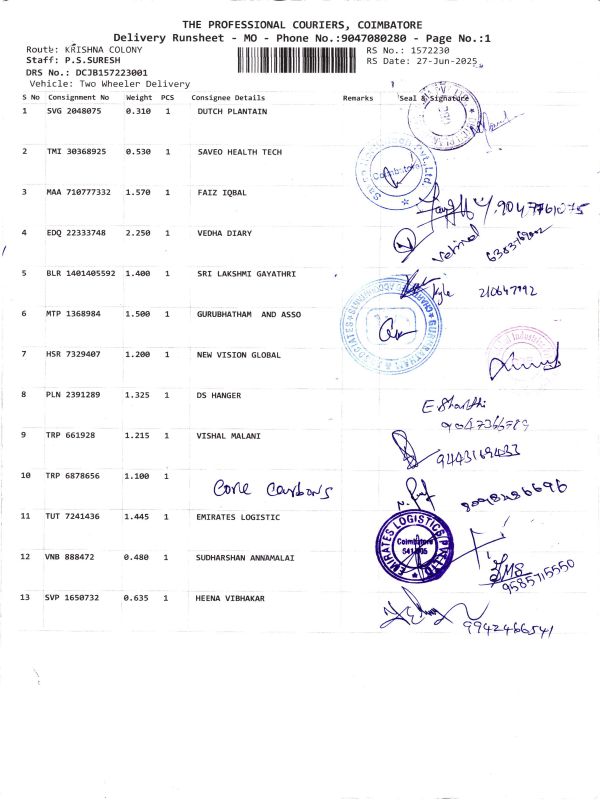 THE PROFESSIONAL COURIERS, COIMBATORE
Delivery Runsheet - MO - Phone No.:9047080280 - Page No.:1
Route: KRISHNA COLONY RS No.: 1572230
Staff: P.S.SURESH RS Date: 27-Jun-2025
DRS No.: DCJB157223001
Vehicle: Two Wheeler Delivery
S No Consignment No Weight PCS Consignee Details Remarks Seal & Signature
1 SVG 2048075 0.310 1 DUTCH PLANTAIN
2 TMI 30368925 0.530 1 SAVEO HEALTH TECH
Coimbatore
3 MAA 710777332 1.570 1 FAIZ IQBAL
9047761075
4 EDQ 22333748 2.250 1 VEDHA DIARY
5 BLR 1401405592 1.400 1 SRI LAKSHMI GAYATHRI
Kyle
6 MTP 1368984 1.500 1 GURUBHATHAM AND ASSO
7 HSR 7329407 1.200 1 NEW VISION GLOBAL
8 PLN 2391289 1.325 1 DS HANGER
9 TRP 661928 1.215 1 VISHAL MALANI
10 TRP 6878656 1.100 1 Core Carbons
11 TUT 7241436 1.445 1 EMIRATES LOGISTIC
EMIRATES LOGISTICS PVT LTD
Coimbatore
12 VNB 888472 0.480 1 SUDHARSHAN ANNAMALAI
9585715550
13 SVP 1650732 0.635 1 HEENA VIBHAKAR
9942466541